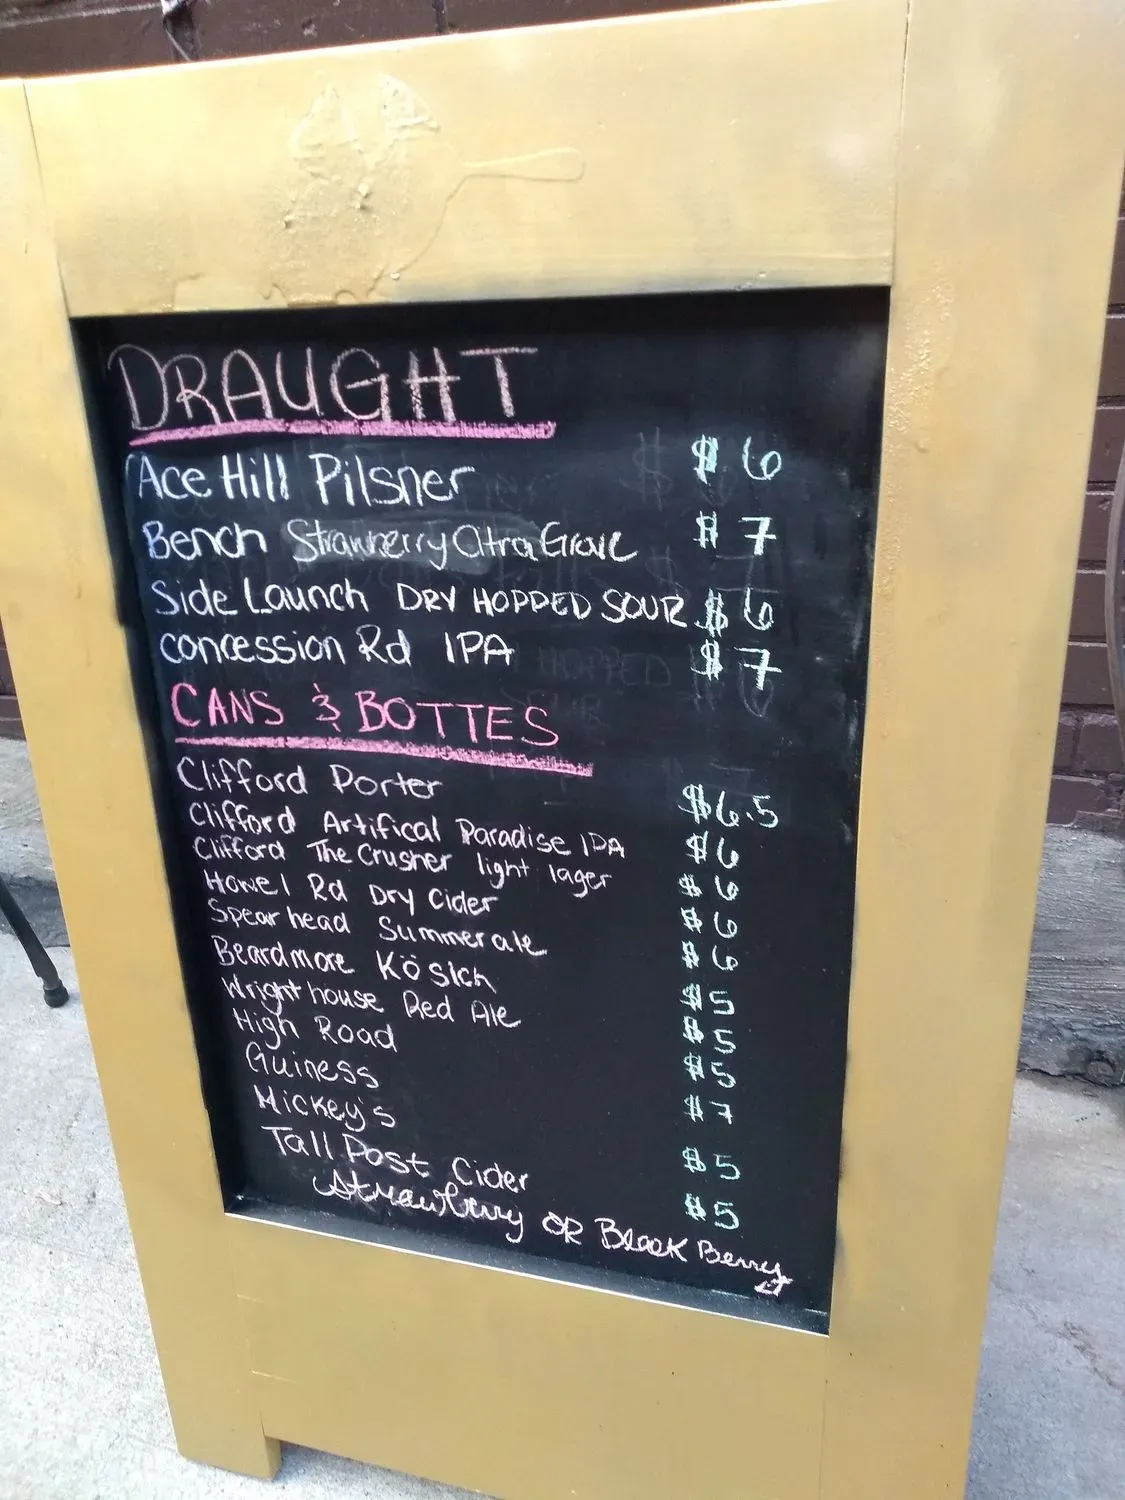 DRAUGHT
Ace Hill Pilsner $6
Bench Strawberry Citra Grove $7
Side Launch DRY HOPPED SOUR $6
concession Rd IPA $7
CANS & BOTTES
Clifford Porter $6.5
Clifford Artifical Paradise IPA $6
Clifford The Crusher light lager $6
Howel Rd Dry Cider $6
Spearhead Summer ale $6
Beardmore Kösich $5
Wrighthouse Red Ale $5
High Road $5
Guiness $7
Mickey's $5
Tall Post Cider $5
Strawberry OR Black Berry